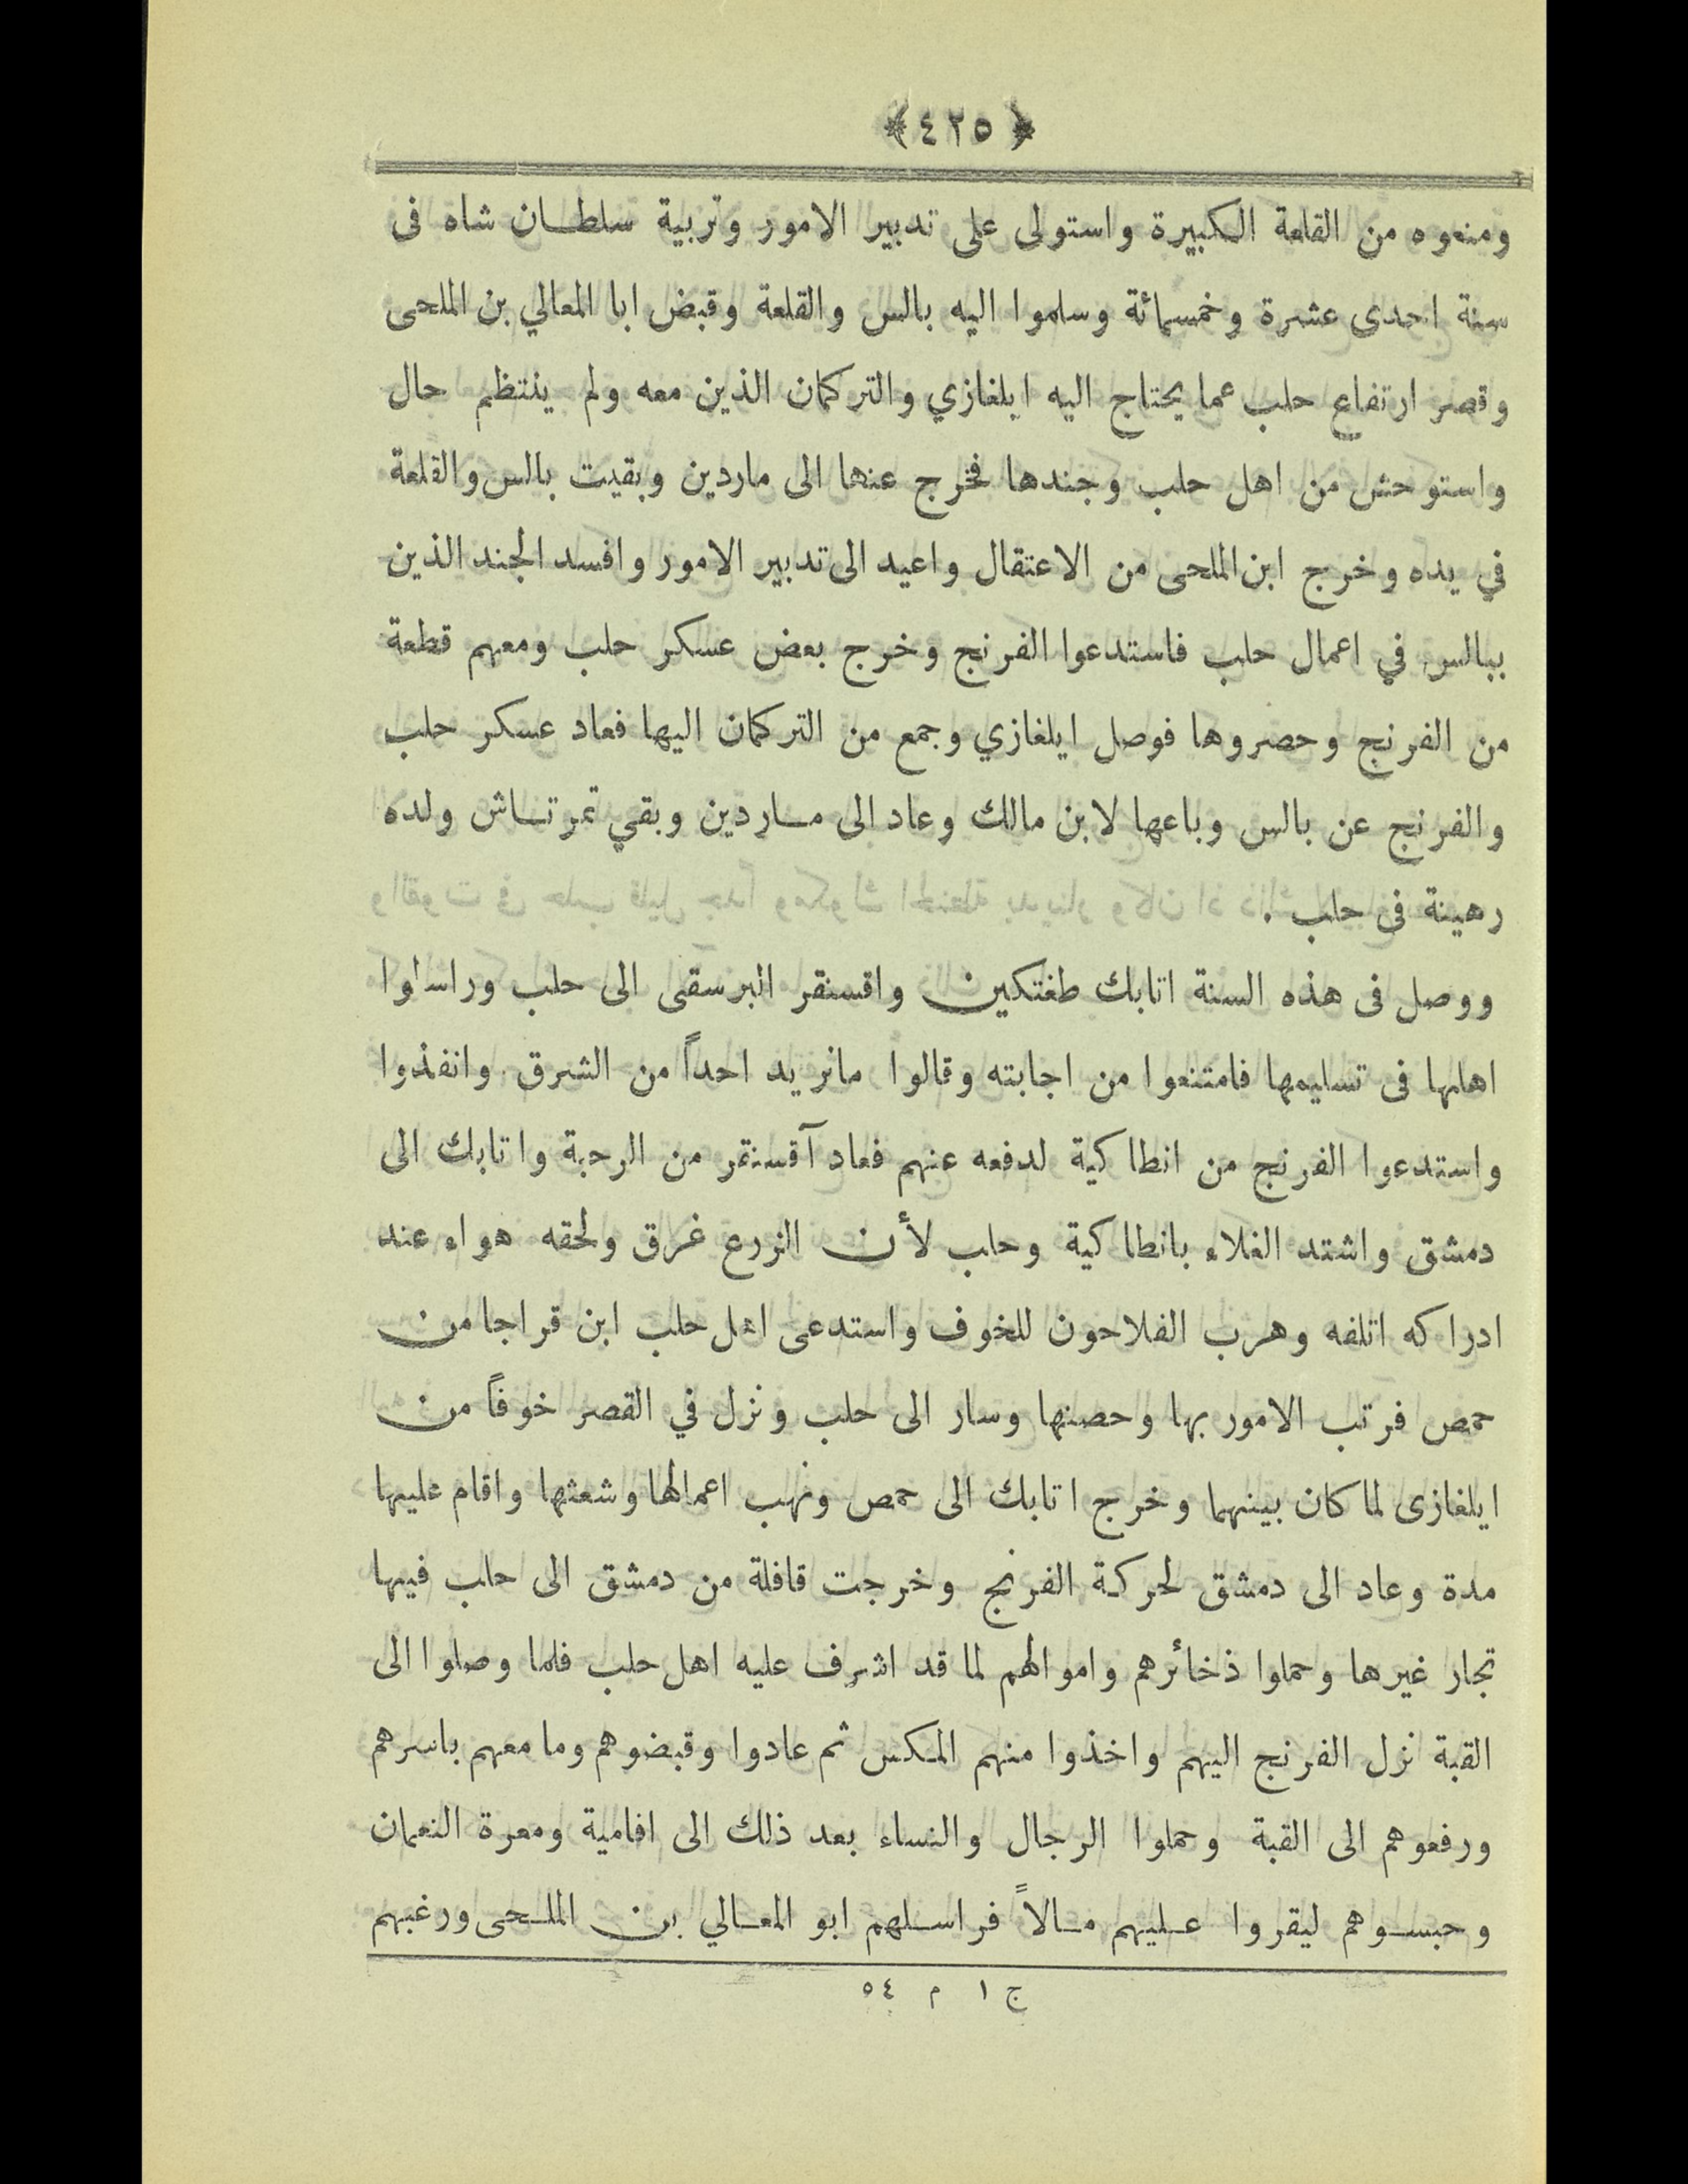 ﴿ ٤٢٥ ﴾
ومنعوه من القلعة الكبيرة واستولى على تدبير الامور وتربية سلطان شاه فى
سنة احدى عشرة وخمسمائة وسلموا اليه بالس والقلعة وقبض ابا المعالي بن الملحى
وقصر ارتفاع حلب عما يحتاج اليه ايلغازي والتركمان الذين معه ولم ينتظم حال
واستوحش من اهل حلب وجندها فخرج عنها الى ماردين وبقيت بالس والقلعة
في يده وخرج ابن الملحى من الاعتقال واعيد الى تدبير الامور وافسد الجند الذين
ببالس في اعمال حلب فاستدعوا الفرنج وخرج بعض عسكر حلب ومعهم قطعة
من الفرنج وحصروها فوصل ايلغازي وجمع من التركمان اليها فعاد عسكر حلب
والفرنج عن بالس وباعها لابن مالك وعاد الى ماردين وبقي تمرتاش ولده
رهينة فى حلب .
ووصل فى هذه السنة اتابك طغتكين واقسنقر البرسقى الى حلب وراسلوا
اهلها فى تسليمها فامتنعوا من اجابته وقالوا مانريد احداً من الشرق وانفذوا
واستدعوا الفرنج من انطاكية لدفعه عنهم فعاد آقسنقر من الرحبة واتابك الى
دمشق واشتد الغلاء بانطاكية وحلب لأن الزرع غرق ولحقه هواء عند
ادراكه اتلفه وهرب الفلاحون للخوف واستدعى اهل حلب ابن قراجا من
حمص فرتب الامور بها وحصنها وسار الى حلب ونزل في القصر خوفاً من
ايلغازى لما كان بينهما وخرج اتابك الى حمص ونهب اعمالها وشعثها واقام عليها
مدة وعاد الى دمشق لحركة الفرنج وخرجت قافلة من دمشق الى حلب فيها
تجار غيرها وحملوا ذخائرهم واموالهم لما قد اشرف عليه اهل حلب فلما وصلوا الى
القبة نزل الفرنج اليهم واخذوا منهم المكس ثم عادوا وقبضوهم وما معهم باسرهم
ورفعوهم الى القبة وحملوا الرجال والنساء بعد ذلك الى افامية ومعرة النعمان
وحبسوهم ليقروا عليهم مالاً فراسلهم ابو المعالي بن الملحى ورغبهم
ج ١ م ٥٤